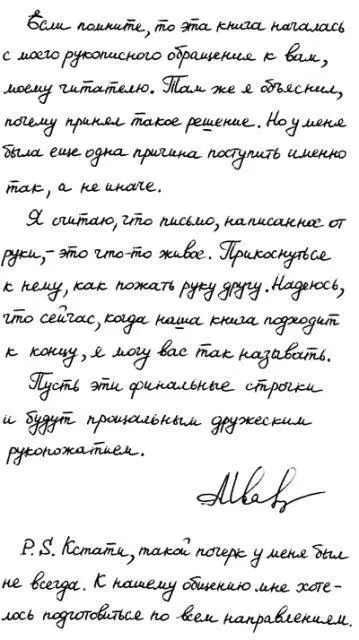 Если помните, то эта книга началась
с моего рукописного обращения к вам,
моему читателю. Там же я объяснил,
почему принял такое решение. Но у меня
была еще одна причина поступить именно
так, а не иначе.
Я считаю, что письмо, написанное от
руки, – это что-то живое. Прикоснуться
к нему, как пожать руку другу. Надеюсь,
что сейчас, когда наша книга подходит
к концу, я могу вас так называть.
Пусть эти финальные строки
и будут прощальным дружеским
рукопожатием.
P.S. Кстати, такой почерк у меня был
не всегда. К нашему общению мне хоте-
лось подготовиться по всем направлениям.